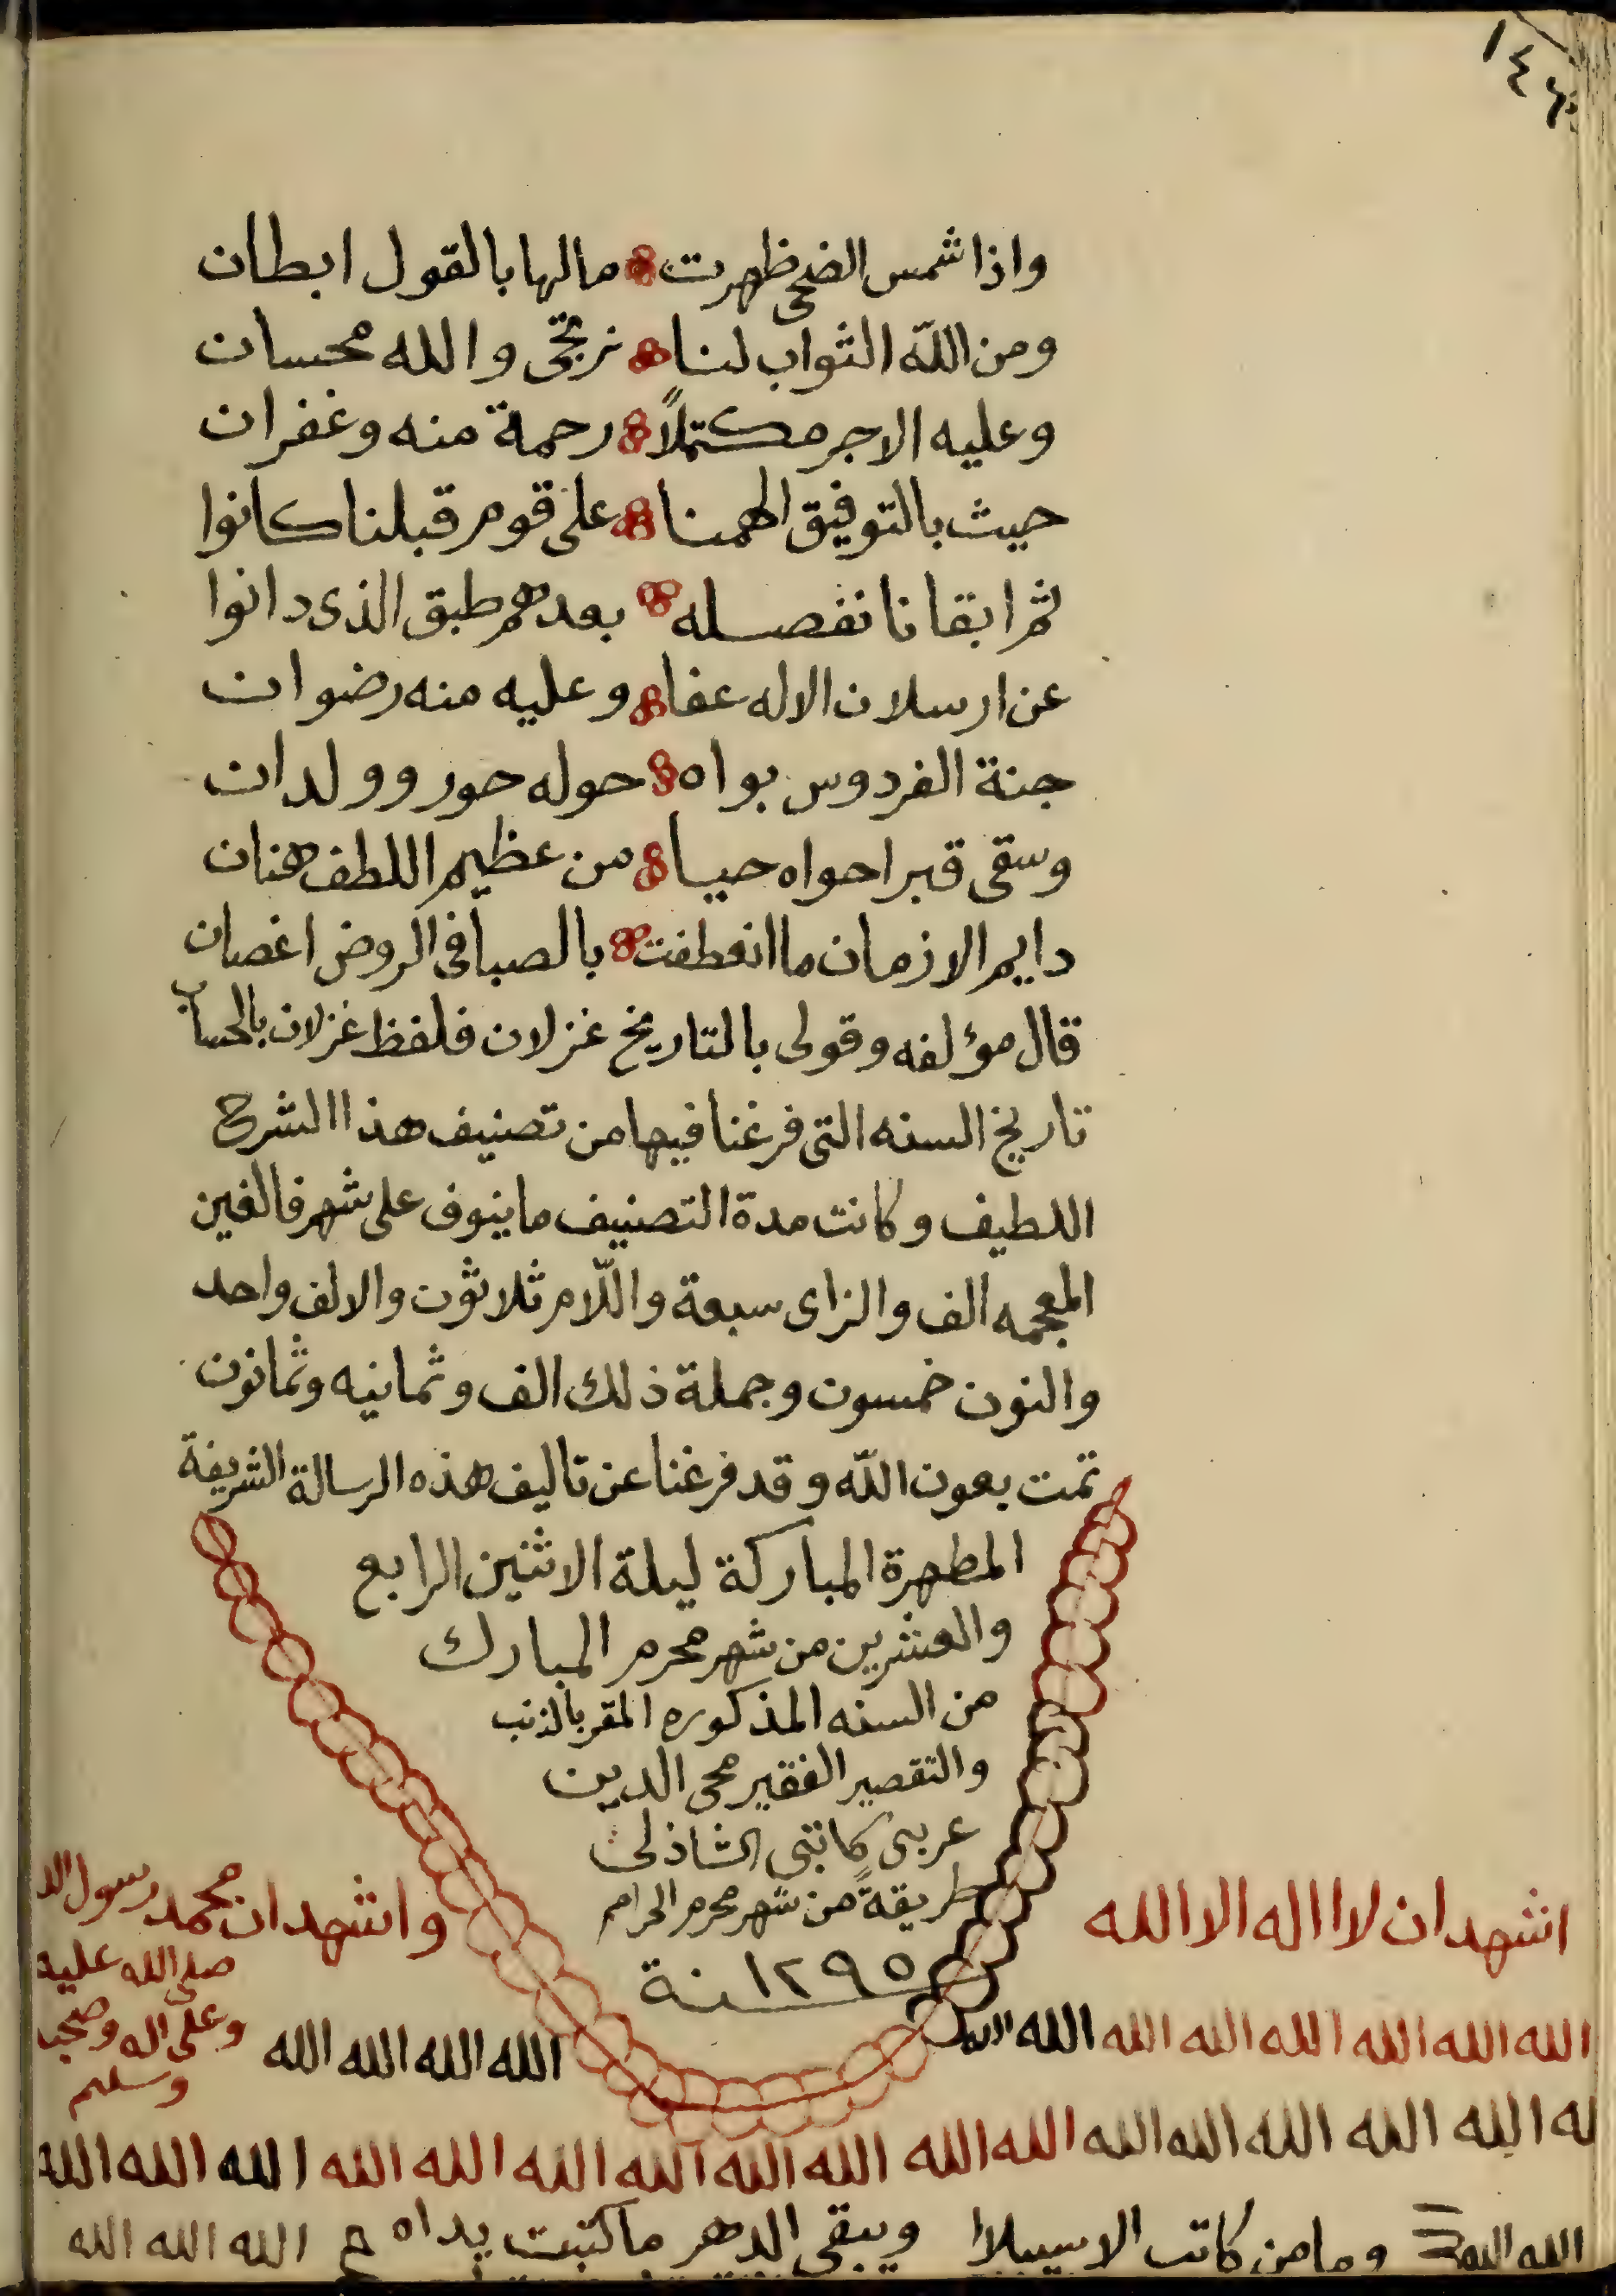 ١٤
واذا شمس الضحى ظهرت مالها بالقول ابطان
ومن اللّه الثواب لنا نرتجى والله محسان
وعليه الاجر مكتملاً رحمة منه وغفران
حيث بالتوفيق الهمنا على قوم قبلنا كانوا
ثم ابقانا نفصله بعدهم طبق الذى دانوا
عن ارسلان الاله عفا وعليه منه رضوان
جنة الفردوس بواه حوله حور وولدان
وسقى قبرا حواه حيا من عظيم اللطف هتان
دايم الازمان ما انعطفت بالصبا فى الروض اغصان
قال مؤلفه وقولى بالتاريخ غزلان فلفظ غزلان بالحساب
تاريخ السنه التى فرغنا فيها من تصنيف هذا الشرح
اللطيف وكانت مدة التصنيف ما ينوف على شهر فالغين
المعجمه الف والزاى سبعة واللّام ثلاثون والالف واحد
والنون خمسون وجملة ذلك الف وثمانيه وثمانون
تمت بعون اللّه وقد فرغنا عن تاليف هذه الرسالة الشريفة
المطهرة المباركة ليلة الاثنين الرابع
والعشرين من شهر محرم المبارك
من السنه المذكوره المقر بالذنب
والتقصير الفقير محى الدين
عربى كاتبى الشاذلى
طريقةً من شهر محرم الحرام
سنة ١٢٩٥
اشهد ان لا اله الا الله
واشهد ان محمد رسول الله
صلى الله عليه
وعلى اله وصحبه
وسلم
الله الله الله الله الله الله الله الله
الله الله الله الله
له الله الله الله الله الله الله الله الله الله الله الله الله الله الله الله الله الله
الله الله وما من كاتب الا سيبلا ويبقى الدهر ما كتبت يداه الله الله الله